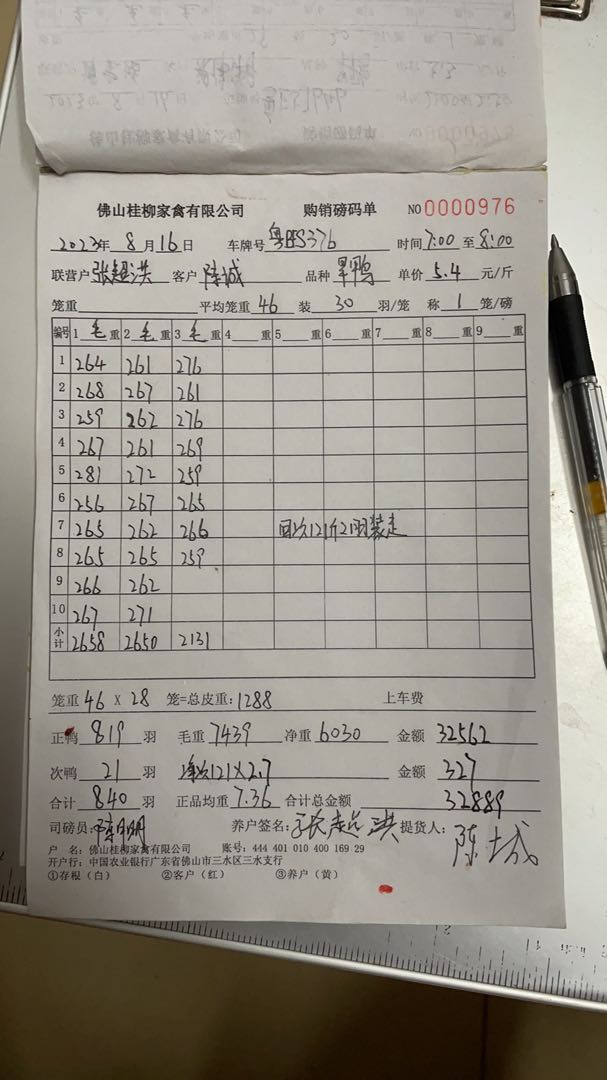 佛山桂柳家禽有限公司 购销磅码单 NO 0000976
2023年 8月16日 车牌号 粤BES376 时间 7:00 至 8:00
联营户 张超洪 客户 陈诚 品种 旱鸭 单价 5.4 元/斤
笼重 平均笼重 46 装 30 羽/笼 称 1 笼/磅
编号 1 毛 重 2 毛 重 3 毛 重 4 重 5 重 6 重 7 重 8 重 9 重
1 264 261 276
2 268 267 261
3 259 262 276
4 267 261 269
5 281 272 259
6 256 267 265
7 265 262 266 回次121斤21羽装走
8 265 265 259
9 266 262
10 267 271
小计 2658 2650 2131
笼重 46 X 28 笼=总皮重: 1288 上车费
正鸭 819 羽 毛重 7439 净重 6030 金额 32562
次鸭 21 羽 净次121X2.7 金额 327
合计 840 羽 正品均重 7.36 合计总金额 32889
司磅员: 养户签名: 张超洪 提货人: 陈城
户 名: 佛山桂柳家禽有限公司 账号: 444 401 010 400 169 29
开户行: 中国农业银行广东省佛山市三水区三水支行
①存根(白) ②客户(红) ③养户(黄)